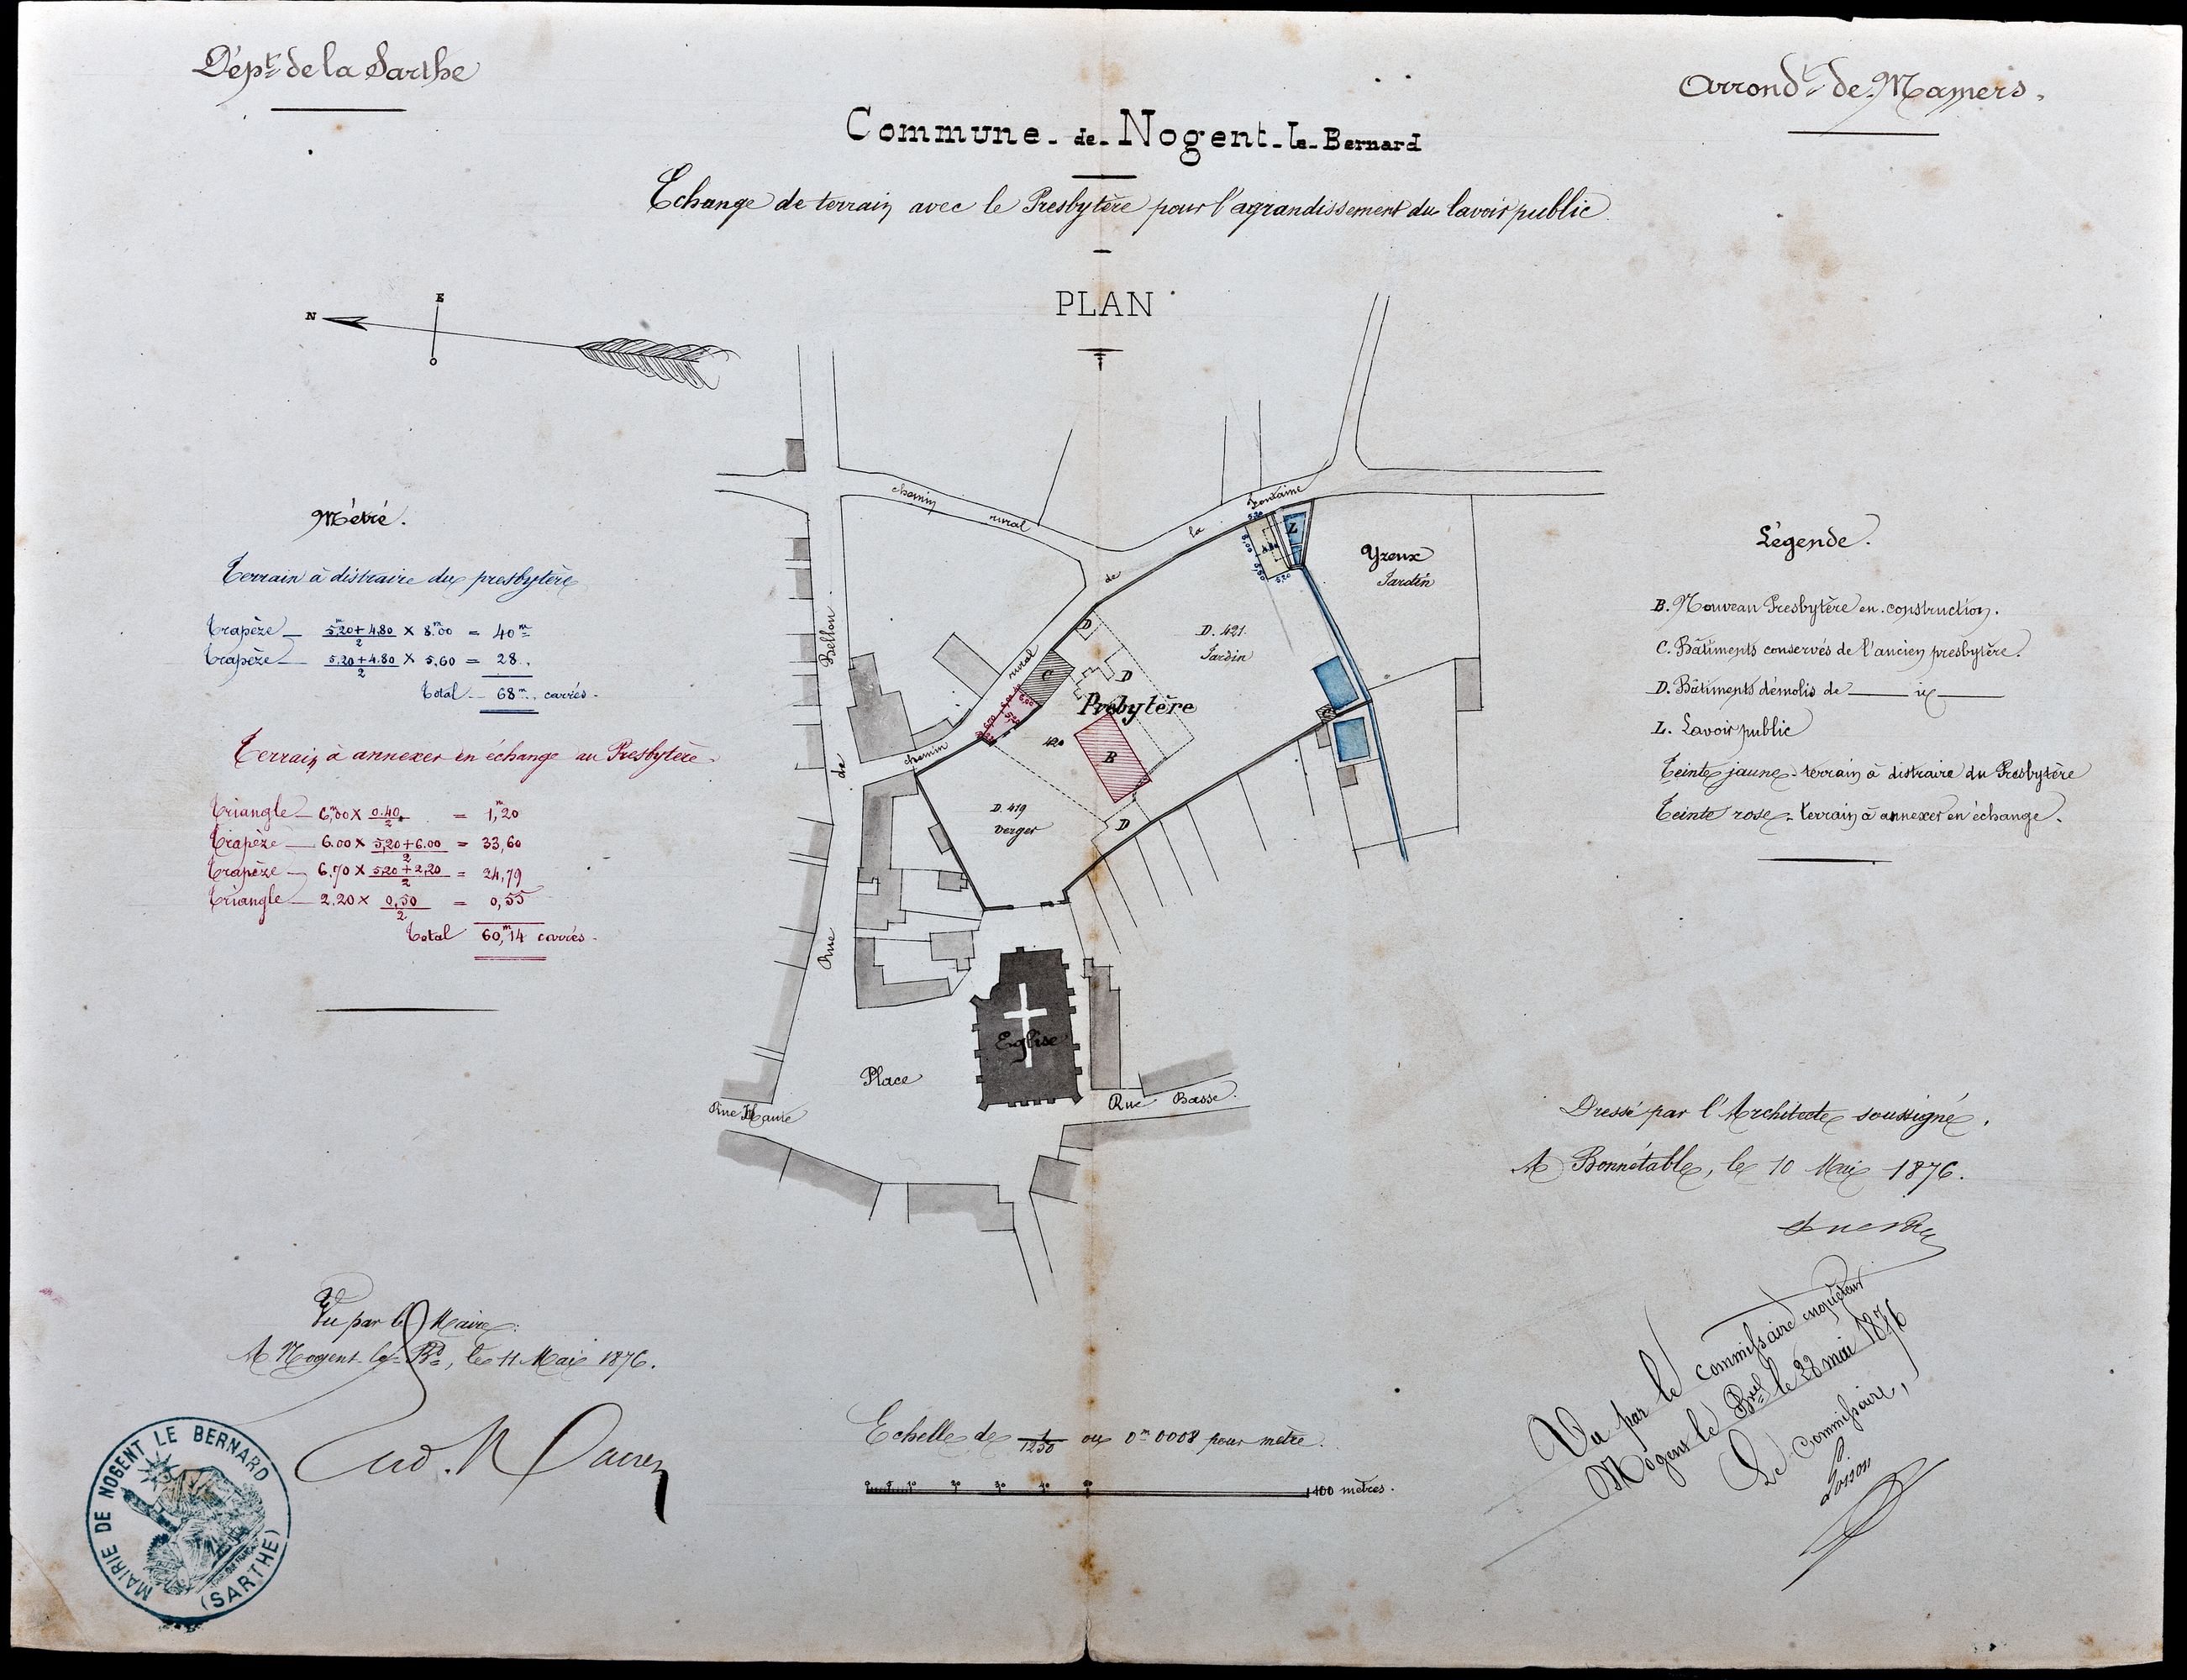 Dépt de la Sarthe
Arrondt de Mamers.
Commune de Nogent-le-Bernard
Echange de terrain avec le Presbytère pour l'agrandissement du lavoir public
PLAN
N
E
O
Métré.
Terrain à distraire du presbytère
Trapèze — 5,20+4,80/2 × 8m00 = 40m
Trapèze — 5,20+4.80/2 × 5,60 = 28.
Total — 68m carrés.
Terrain à annexer en échange au Presbytère.
Triangle — 6m00 × 0.40/2 = 1m,20
Trapèze — 6.00 × 5,20+6.00/2 = 33,60
Trapèze — 6.70 × 5,20+2,20/2 = 24,79
Triangle — 2.20 × 0,50/2 = 0,55
Total 60m,14 carrés.
Légende.
B. Nouveau Presbytère en construction.
C. Bâtiments conservés de l'ancien presbytère.
D. Bâtiments démolis de — id —
L. Lavoir public
Teinte jaune - terrain à distraire du Presbytère
Teinte rose - terrain à annexer en échange.
chemin rural
de la Fontaine
L
Yzeux
Jardin
D. 421
Jardin
D
rural
C
D
Presbytère
420
B
chemin
D. 419
Verger
D
Rue de Bellou
Eglise
Place
Rue Haute
Rue Basse.
Dressé par l'Architecte soussigné.
A Bonnétable, le 10 Mai 1876.
Vu par le Maire:
A Nogent-le-Bd, le 11 Mai 1876.
Vu par le commissaire enquêteur
Nogent le Brel le 28 mai 1876
Le Commissaire,
Echelle de 1/1250 ou 0m0008 pour mètre.
0 5 10 20 30 40 50 100 mètres.
MAIRIE DE NOGENT LE BERNARD
(SARTHE)